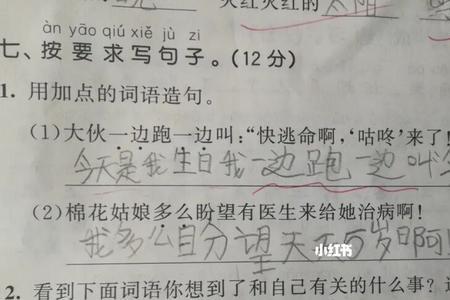 火红火红的 太阳
àn yāo qiú xiě jù zi
七、按要求写句子。(12分)
1. 用加点的词语造句。
(1)大伙一边跑一边叫:“快逃命啊,‘咕咚’来了!
今天是我生日我一边跑一边叫
(2)棉花姑娘多么盼望有医生来给她治病啊!
我多么自分望天天5岁日啊
小红书
2. 看到下面词语你想到了和自己有关的什么事?